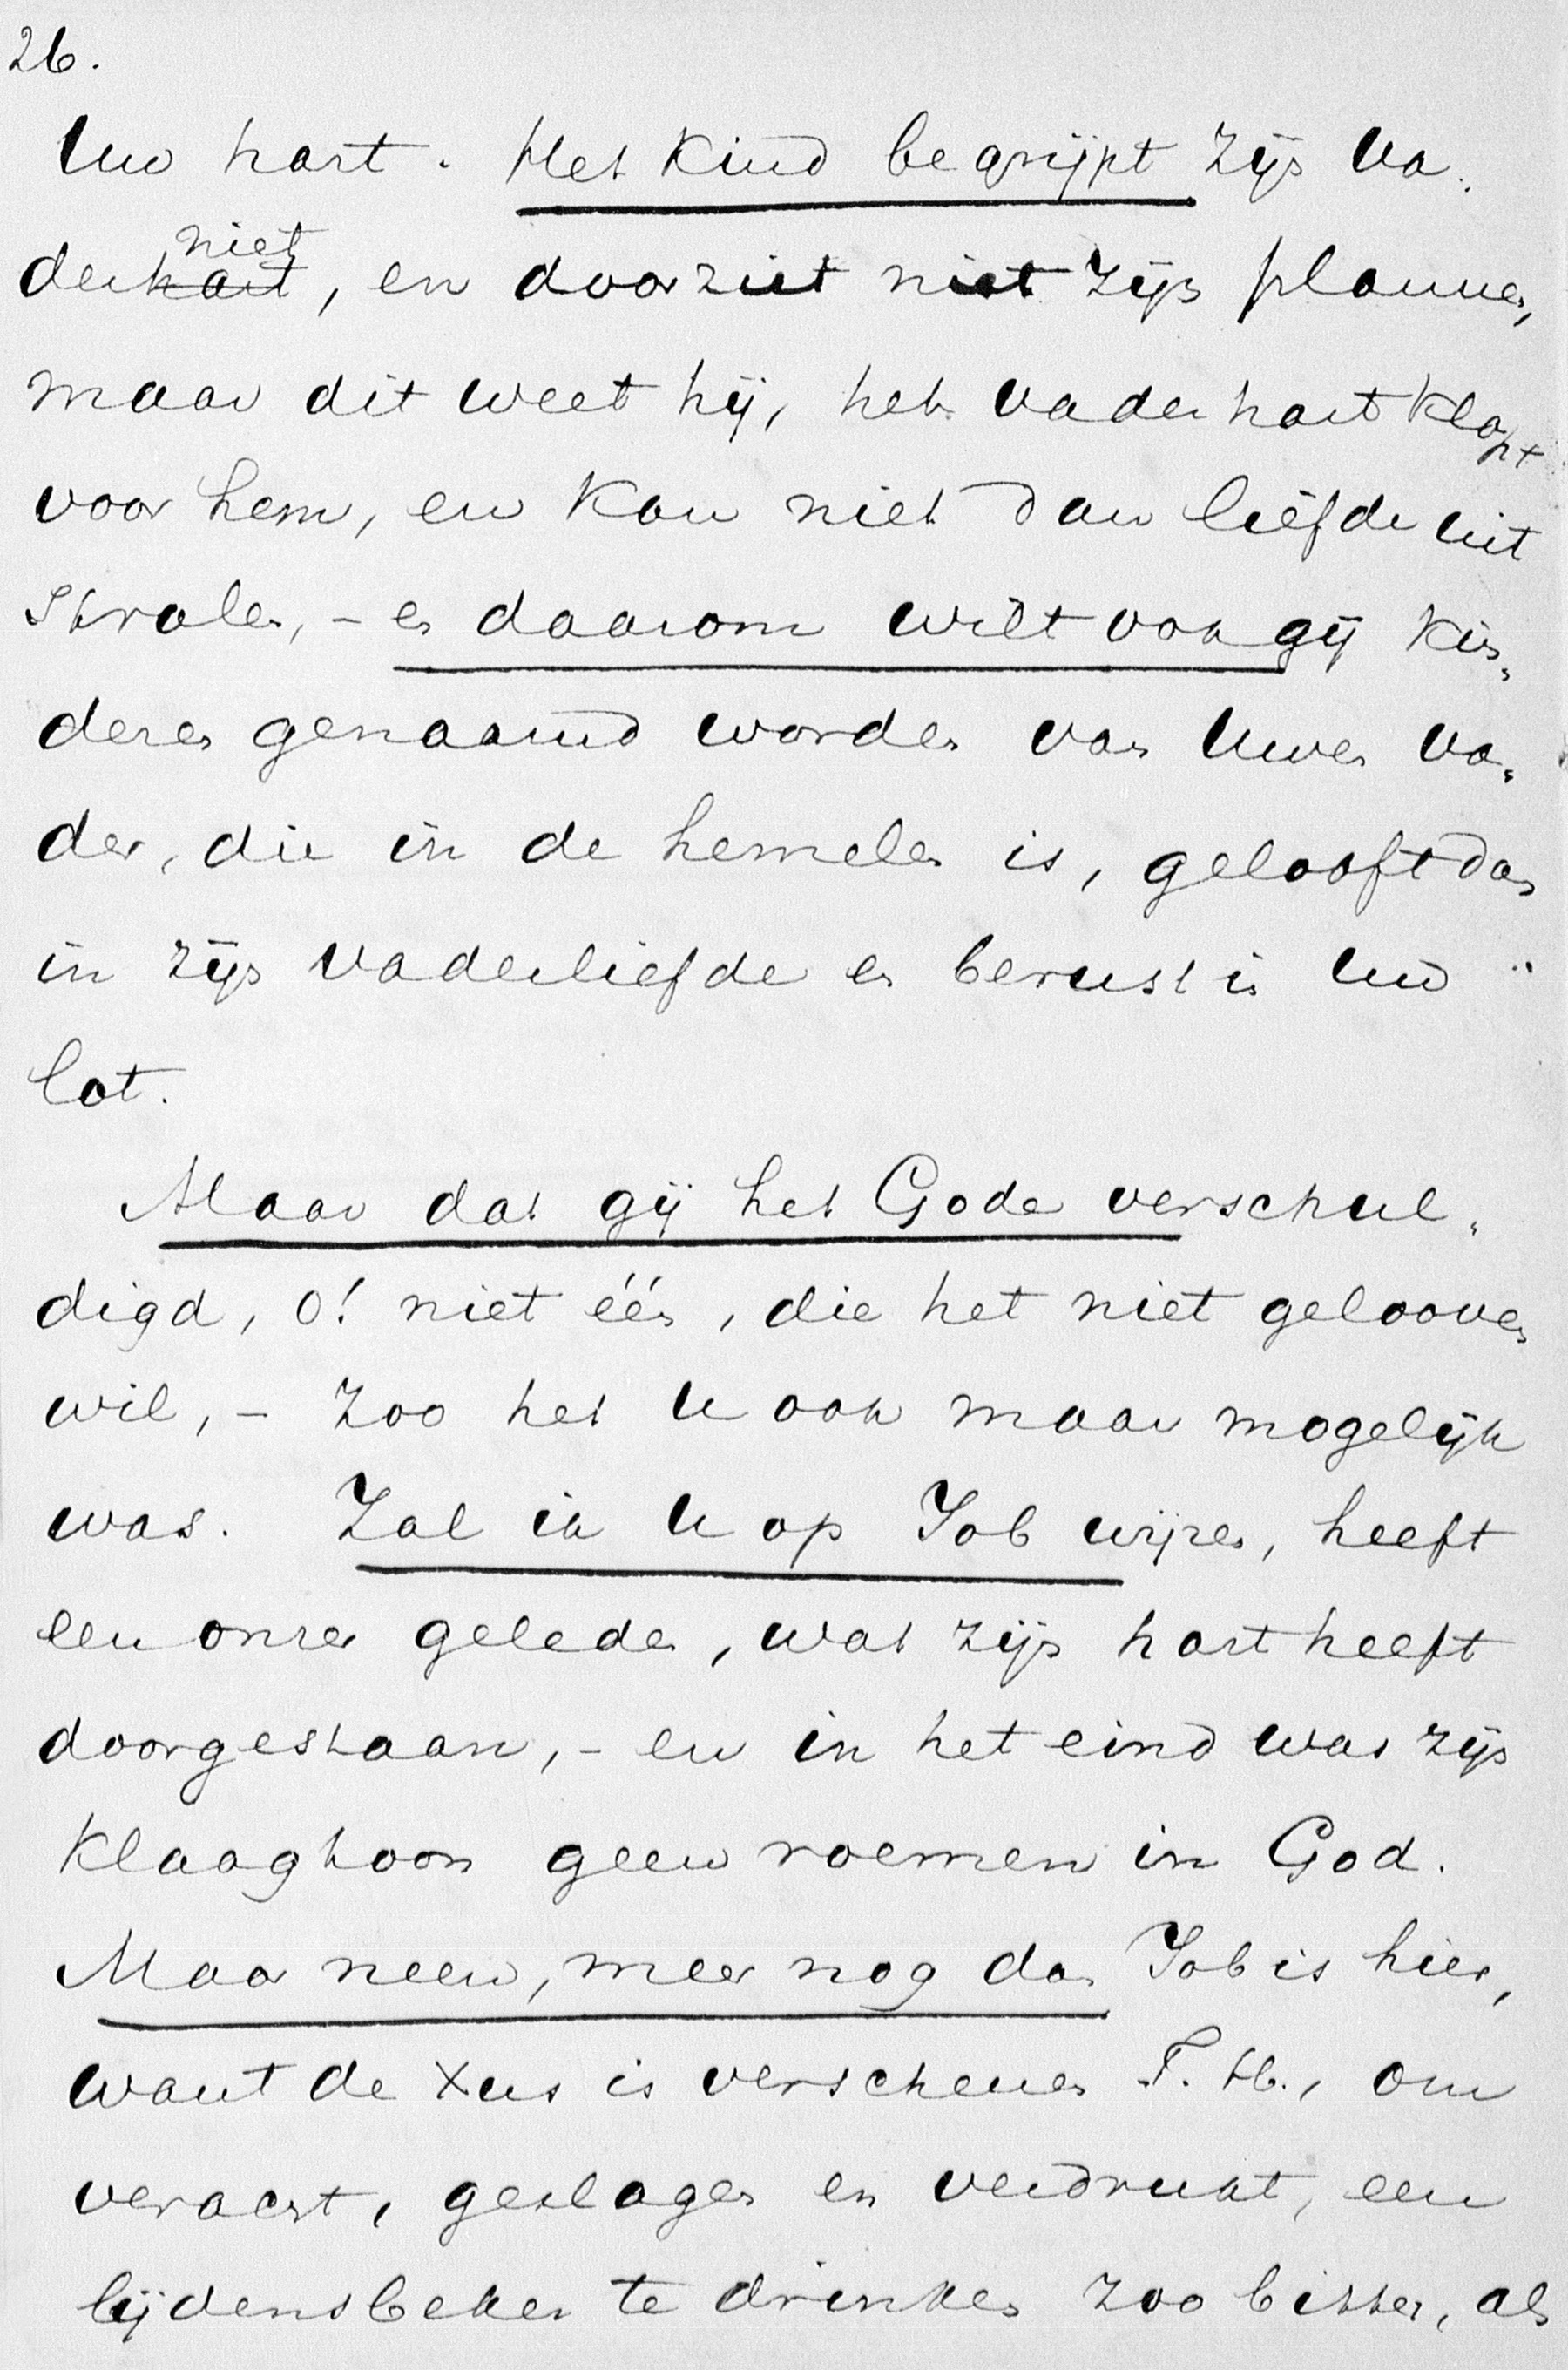 26.
Uw hart. Het kind begrijpt zijn va-
der niet, en doorziet niet zijn plannen,
maar dit weet hij, het vaderhart klopt
voor hem, en kan niet dan liefde uit
stralen, - en daarom wilt ook gij kin-
deren genaamd worden van Uwen va-
der, die in de hemelen is, gelooft dan
in zijn vaderliefde en berust in Uw
lot.
Maar dat gij het Gode verschul-
digd, o! niet één, die het niet gelooven
wil, - zoo het U ook maar mogelijk
was. Zal ik U op Job wijzen, heeft
een onzer geleden, wat zijn hart heeft
doorgestaan, - en in het eind was zijn
klaagtoon geen roemen in God.
Maar neen, meer nog dan Job is hier,
want de Xus is verschenen T. H., om
veracht, geslagen en verdrukt, een
lijdensbeker te drinken zoo bitter, als